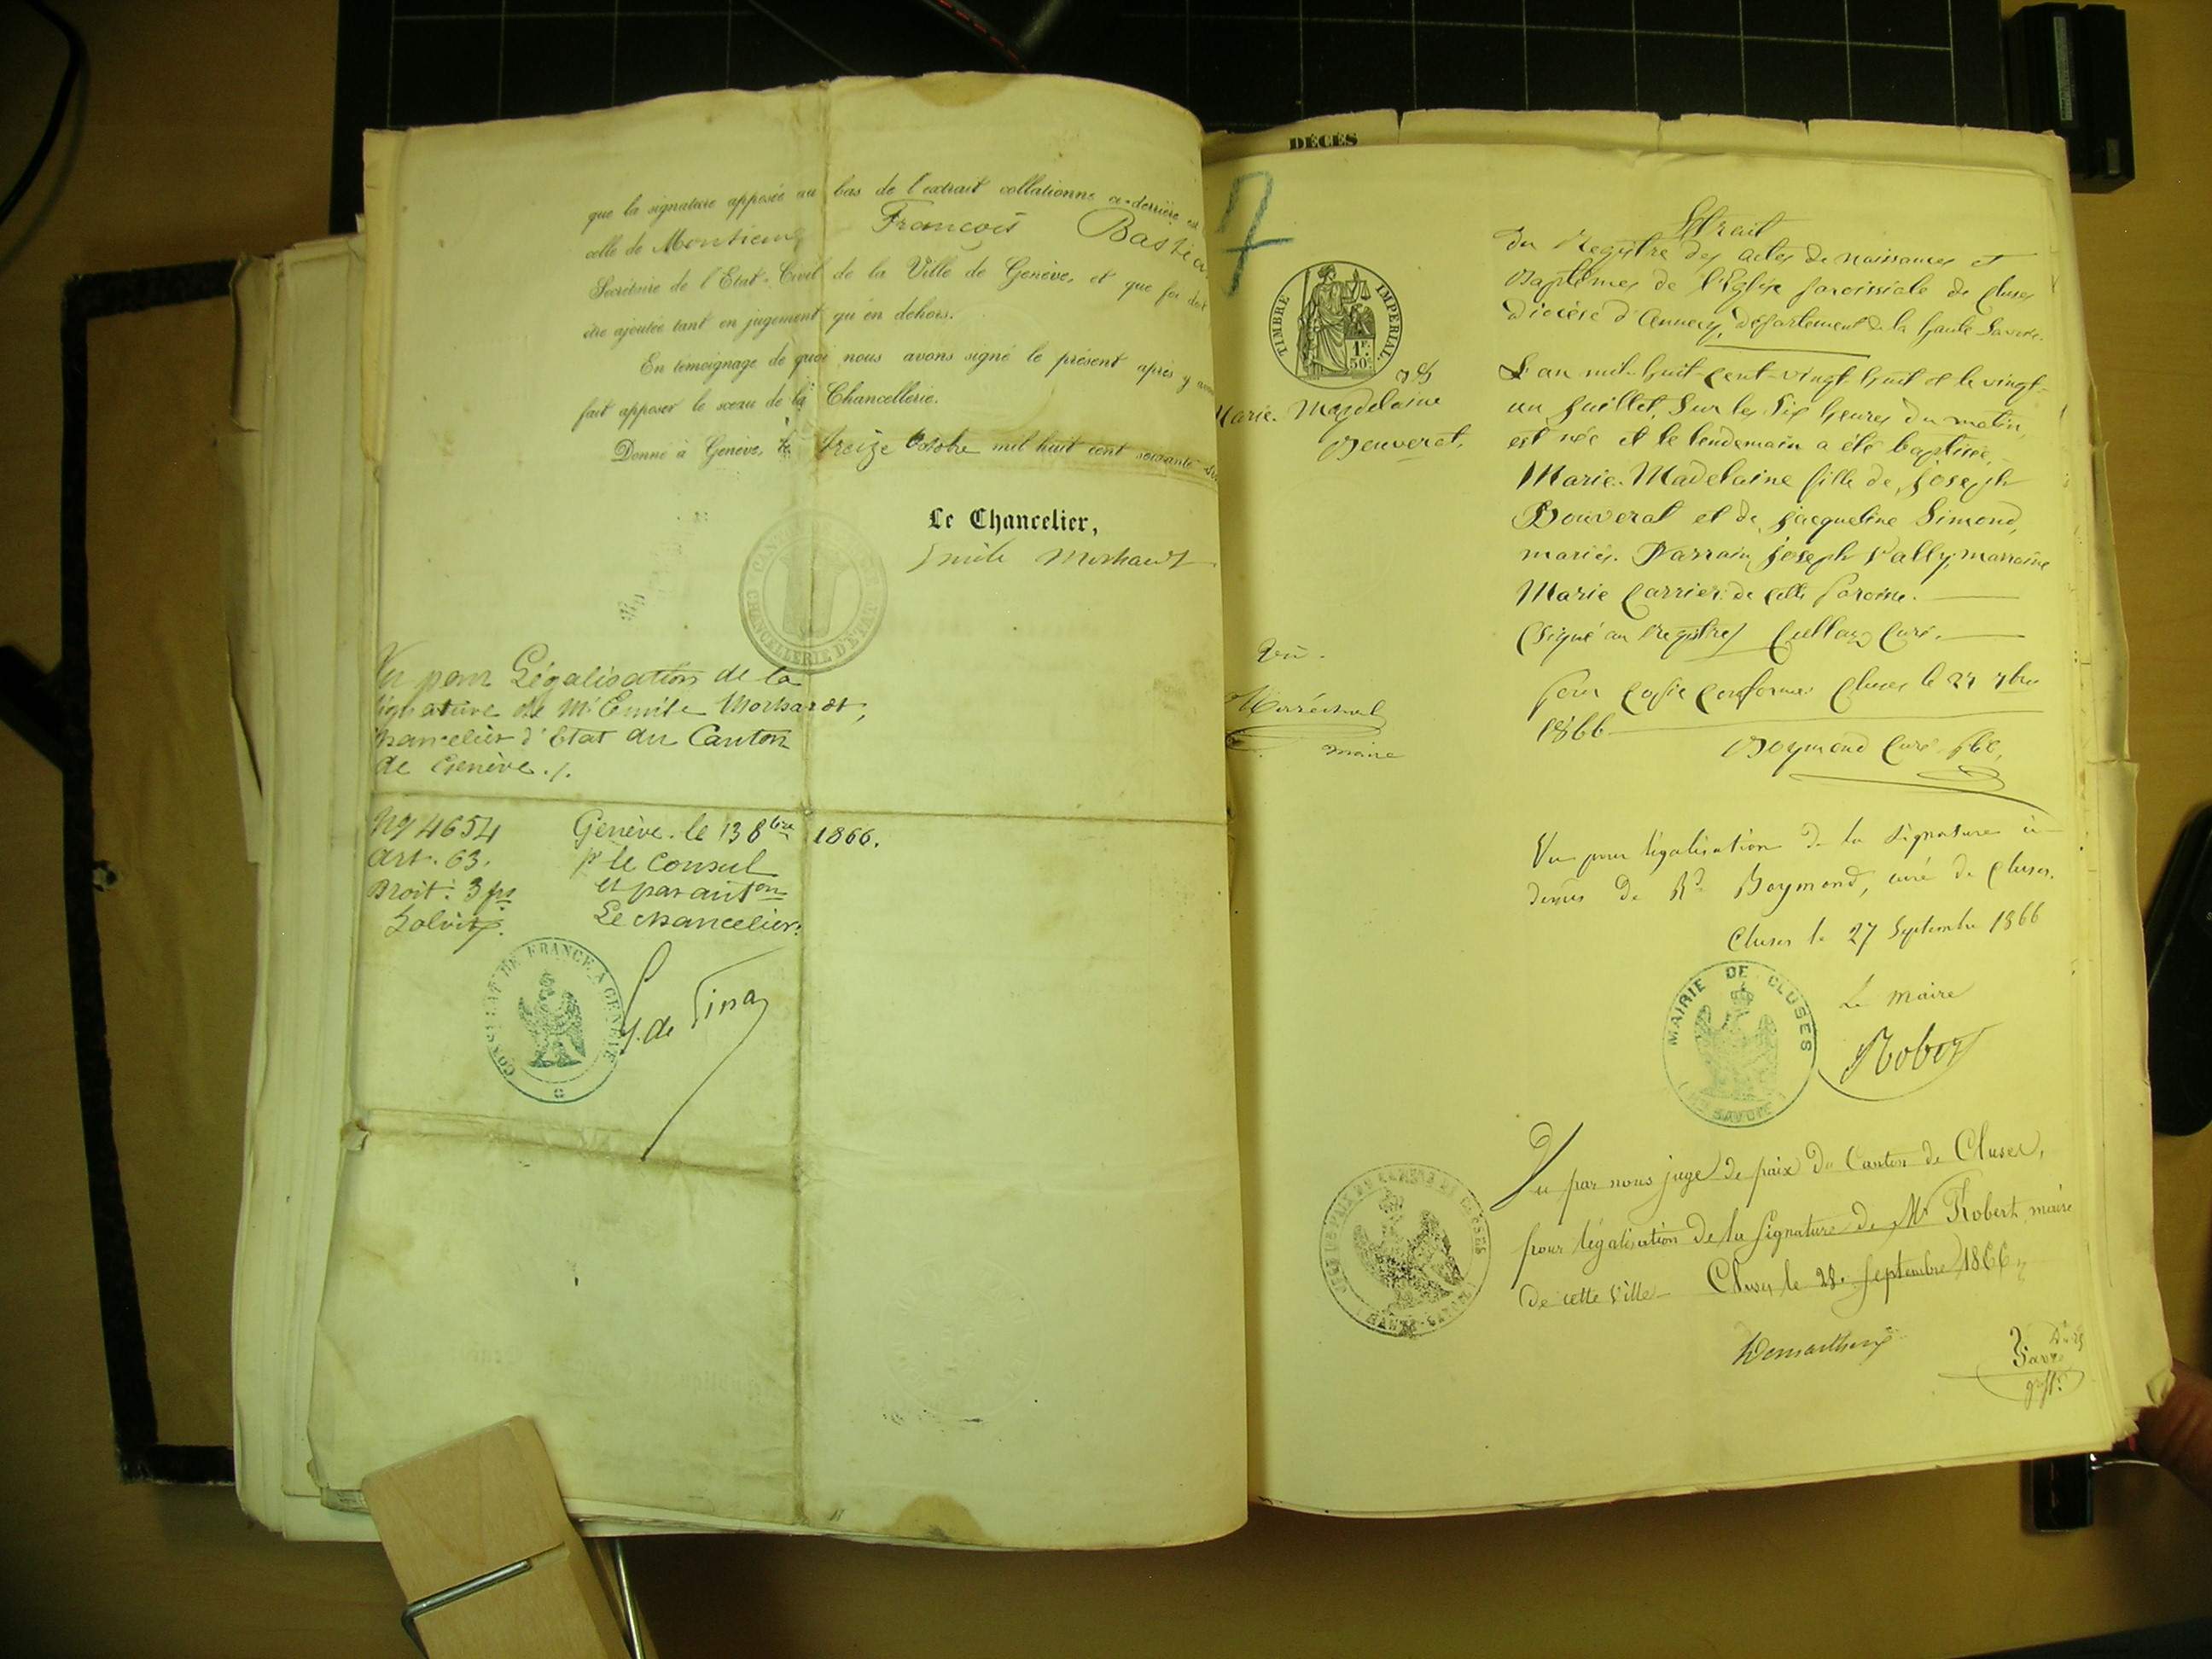 que la signature apposée au bas de l'extrait collationné ci-derrière est
celle de Monsieur François Bastian
Secrétaire de l'Etat-Civil de la Ville de Genève, et que foi doit
être ajoutée tant en jugement qu'en dehors.
En témoignage de quoi nous avons signé le présent après y avoir
fait apposer le sceau de la Chancellerie.
Donné à Genève, le treize Octobre mil huit cent soixante six
Le Chancelier,
Emile Morhardt
CHANCELLERIE D'ETAT
Vu pour Légalisation de la
signature de Mr Emile Morhardt,
chancelier d'Etat du Canton
de Genève ./.
No 4654
Art. 63.
Droit: 3 frs
Genève. le 13 8bre 1866.
pr le Consul
et par auton
Le chancelier:
CONSULAT DE FRANCE À GENÈVE
DÉCÈS
7
TIMBRE IMPERIAL
1F. 50c
Marie. Magdelaine
Bouverat.
Vu.
Maréchal
maire
Extrait
Du Registre des actes de naissances et
Baptêmes de l'Eglise paroissiale de Cluses
Diocèse d'Annecy, département de la haute Savoie.
L'an mil-huit-cent-vingt huit et le vingt-
un juillet, sur les six heures du matin,
est née et le lendemain a été baptisée,
Marie-Madelaine fille de Joseph
Bouverat et de Jacqueline Simond,
mariés. Parrain, Joseph Vally; marraine
Marie Carrier: de cette Paroisse.
(Signé au Registre) Cullaz Curé.
Pour copie conforme. Cluses le 27 7bre
1866
Boymond Curé
Vu pour légalisation de la signature ci-
dessus de Rd Boymond, curé de Cluses.
Cluses le 27 Septembre 1866
MAIRIE DE CLUSES
Hte SAVOIE
Le maire
Robert
Vu par nous juge de paix du Canton de Cluses,
pour légalisation de la signature de Mr Robert, maire
de cette Ville Cluses le 28 Septembre 1866
JUGE DE PAIX DU CANTON DE CLUSES
HAUTE-SAVOIE